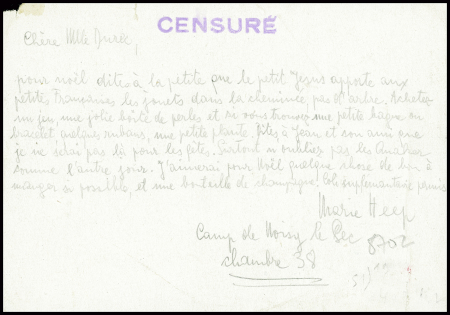 CENSURÉ
Chère Mlle
pour noël dites à la petite que le petit Jezus apporte aux
petites Françaises les jouets dans la cheminée, pas d'arbre. Achetez
un jeu une jolie boîte de perles et si vous trouvez une petite bague ou
bracelet quelques rubans, une petite plante. Dites à Jean et son ami que
je ne serai pas là pour les fêtes. Surtout n'oubliez pas les
somme l'autre jour. J'aimerai pour Noël quelque chose de bon à
manger si possible, et une bouteille de champagne. Colis supplémentaire permis
Marie
Camp de Noisy le Sec 8702
chambre 38